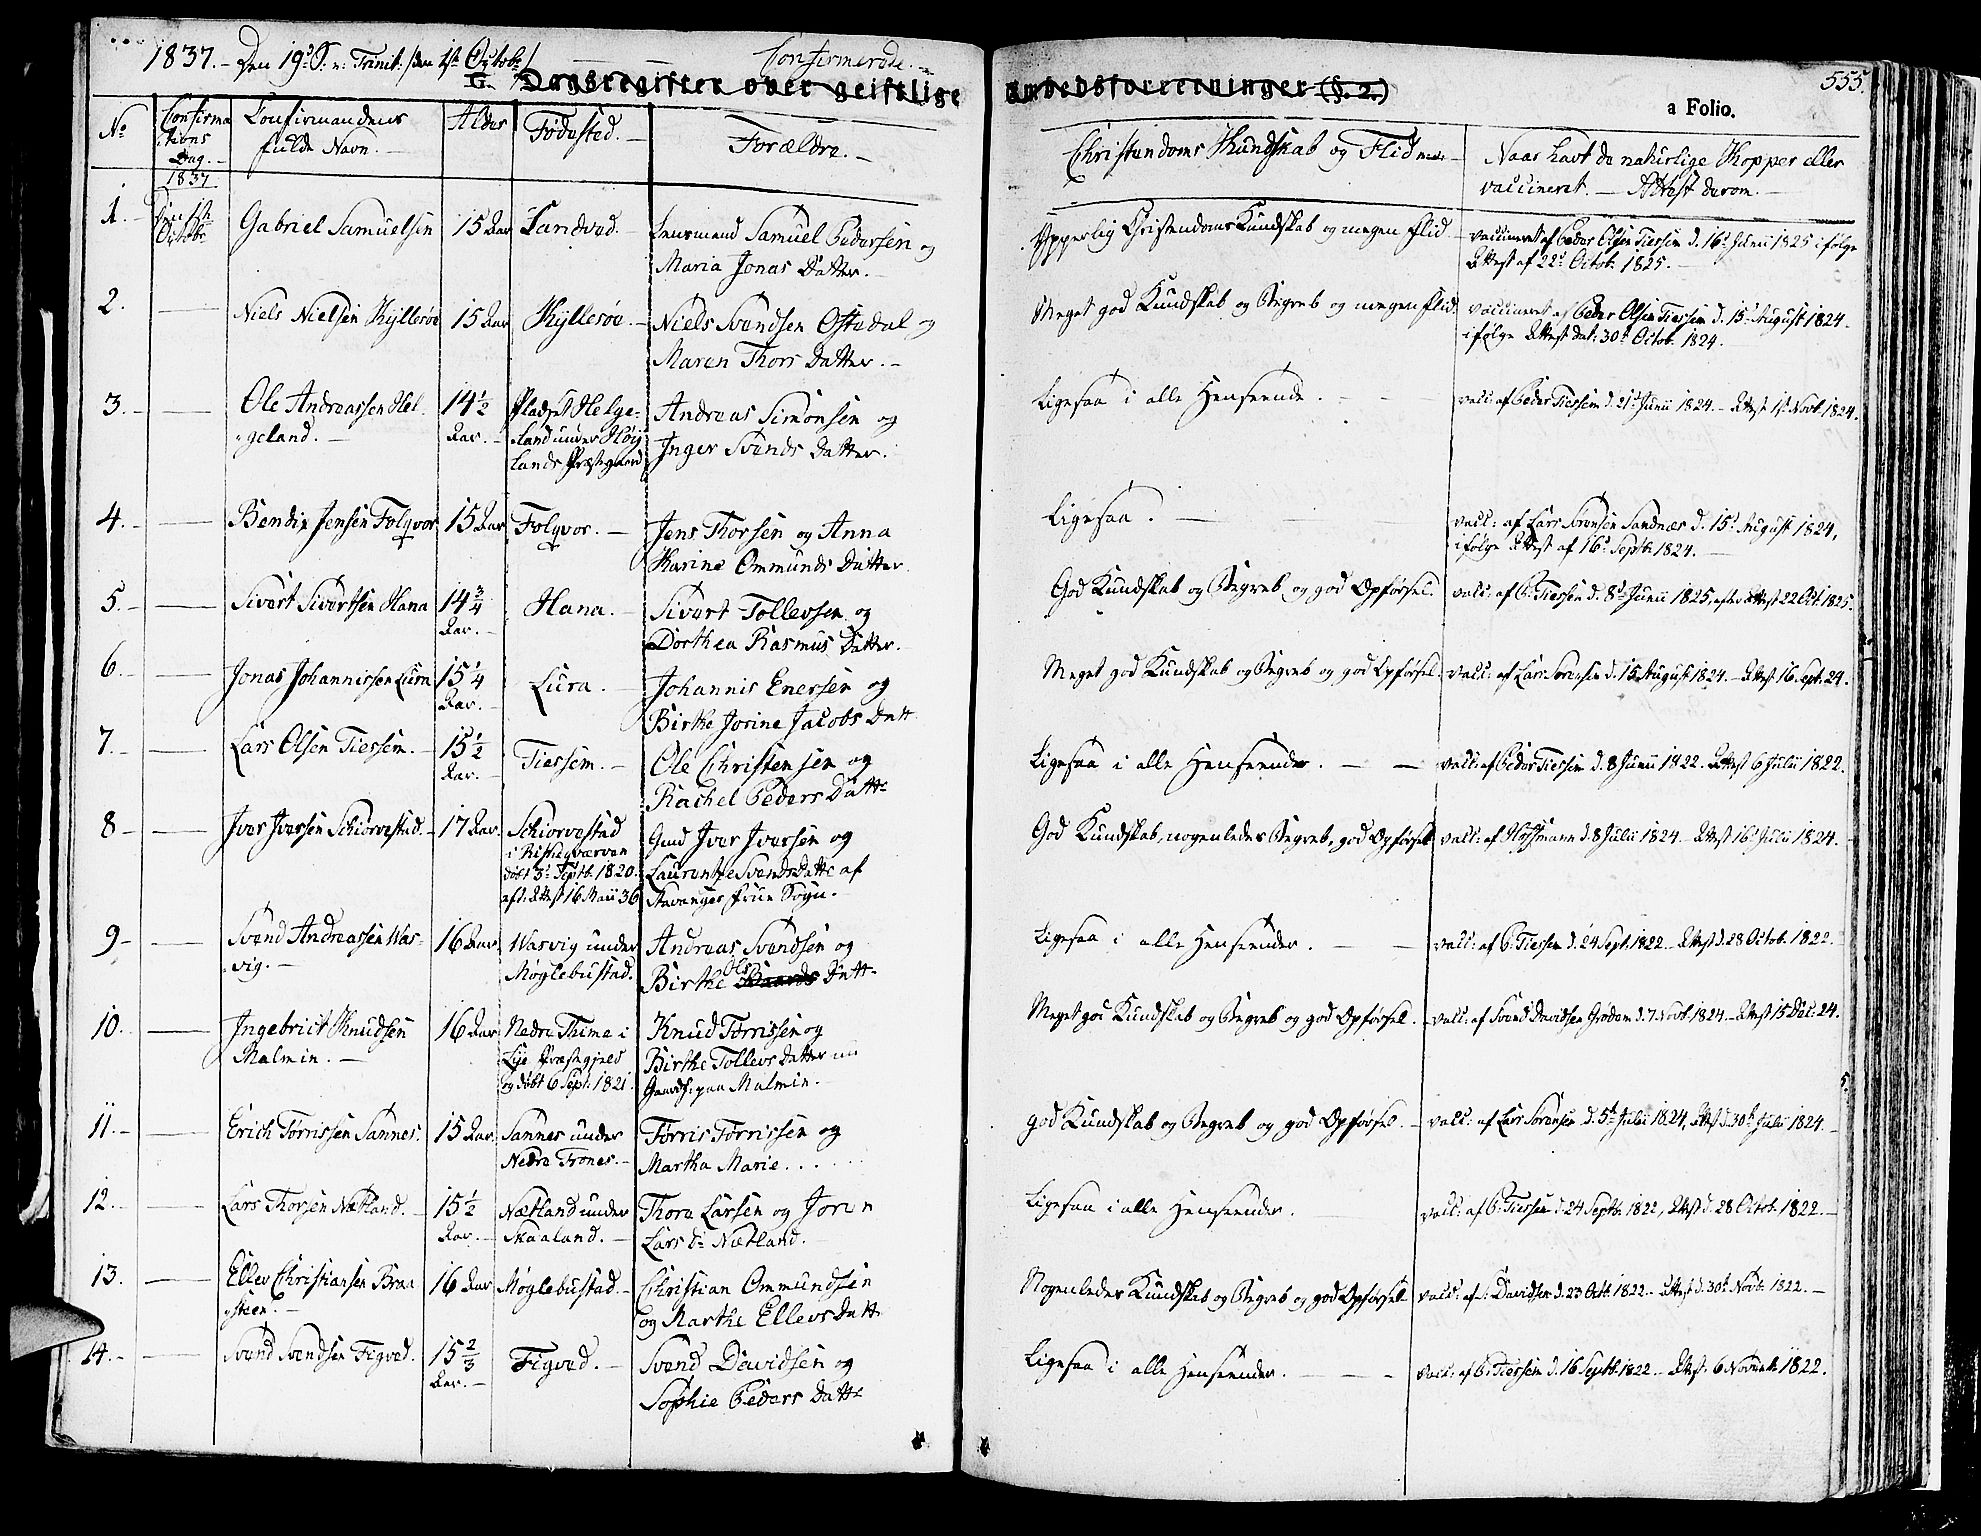 1837. - Den 19de S. n. Trinit. /den 1ste Octobr/ Confirmerede. -
G. Dagsregister over geistlige Embedsforretninger (§. 2.)
555.
a Folio.
No | Confirmations Dag. - | Confirmandens fulde Navn. - | Alder | Fødested. - | Forældre. - | Christendoms Kundskab og Flid | Naar havt de naturlige Kopper eller vaccineret. - Attest derom. -
1837
1. - | Den 1ste Octobr | Gabriel Samuelsen | 15 Aar | Sandved. - | Lensmand Samuel Pedersen og | Ypperlig Christendoms Kundskab og megen Flid. - | vaccineret af Peder Olsen Tiessem d. 16de Junii 1825 ifølge
Maria Jonas Datter. - | Attest af 22de Octob. 1825. -
2. | Niels Nielsen Kyllesøe | 15 Aar | Kyllesøe. - | Niels Svendsen Ostedal og | Meget god Kundskab og Begreb og megen Flid. | vaccineret af Peder Olsen Tiessem d. 15de August 1824.
Maren Thors Datter. - | ifølge Attest dat: 30te Octob. 1824.
3. - | Ole Andreassen Hel- | 14 1/2 | Pladset Helge- | Andreas Simonsen og | Ligesaa i alle Henseende. - | vacc: af Peder Tiessem d. 21de Junii 1824. - Attest 1ste Novb. 1824.
geland. - | Aar. - | land under Høy- | Inger Svends Datter.
lands Præstegaard
4. - | Bendix Jensen Folqvor | 15 Aar | Folqvor. - | Jens Thorsen og Anna | Ligesaa. - | vacc: af Lars Sørensen Sandnæs d. 15de August 1824,
Karine Ommunds Datter | ifølge Attest af 16de Septb. 1824. -
5. - | Sivert Sivertsen Hana | 14 3/4 | Hana. - | Sivert Tollevsen og | God Kundskab og Begreb og god Opførsel. | vacc: af P. Tiessem d. 8de Junii 1825, efter Attest 22 Oct. 1825.
Aar. - | Dorthea Rasmus Datter. -
6. | Jonas Johannissen Lura | 15 1/4 | Lura. - | Johannis Enersen og | Meget god Kundskab og Begreb og god Opførsel. | vacc: af Lars Sørensen d. 15 August 1824. - Attest 16. Sept. 24.
Aar. - | Birthe Jorine Jacobs Datt
7. - | Lars Olsen Tiessem. - | 15 1/2 | Tiessem. - | Ole Christensen og | Ligesaa i alle Henseender. - - | vacc: af Peder Tiessem d. 8 Junii 1822. Attest 6 Julii 1822.
Aar. - | Rachel Peders Datter
8 - | Iver Iversen Schiorvestad. - | 17 Aar. | Schiorvestad | Gmd Iver Iversen og | God Kundskab, nogenledes Begreb, god Opførsel | vacc: af Hoffmann d. 8 Julii 1824 - Attest 16de Julii 1824.
døbt 3de Septb. 1820. | Svendsdatter af
aft: Attest 16 Maii 36 | Stavanger Frue Sogn. -
9 - | Svend Andreassen Was- | 16 Aar | Wasvig under | Andreas Svendsen og | Ligesaa i alle Henseender. - - | vacc: af P. Tiessem d. 24 Sept. 1822 - Attest d. 28 Octob. 1822.
vig. - | Møglebustad. | Birthe Ols Datt
10. - | Ingebrict Knudsen | 16 Aar | Nedre Thime i | Knud Tørrissen og | Meget god Kundskab og Begreb og god Opførsel. - | vacc: af Svend Davidsen Grødem d. 7 Novb. 1824. - Attest 15 Dec. 24.
Malmin. - | Lye Præstegjeld | Birthe Tollevs Datter nu
og døbt 6 Sept. 1821. | paa Malmin. -
11. - | Erich Tørrissen Sannes. | 15 Aar | Sannes under | Tørris Tørrissen og | god Kundskab og Begreb og god Opførsel. - | vacc: af Lars Sørensen d. 5te Julii 1824, Attest d. 30te Julii 1824.
Nedre Trones. - | Martha Marie . . . . .
12. - | Lars Thorsen Nætland. - | 15 1/2 | Nætland under | Thore Larsen og Joren | Ligesaa i alle Henseender. | vacc: af P. Tiessem d. 24 Septb. 1822, Attest d. 28 Octob. 1822. -
Aar. - | Skaaland. - | Lars Dr Nætland. -
13. | Ellev Christiansen Braa | 16 Aar | Møglebustad. - | Christian Ommundsen | Nogenledes Kundskab og Begreb og god Opførsel | vacc: af S. Davidsen d. 23 Octb. 1822 - Attest d. 30te Novb. 1822. -
steen. - | og Marthe Ellevs Datt
14. - | Svend Svendsen Figved. | 15 2/3 | Figved. - | Svend Davidsen og | Ligesaa i alle Henseender. - - - | vacc: af P. Tiessem d. 16 Septb. 1822 - Attest: 6 Novemb. 1822.
Aar. - | Sophie Peders Datter